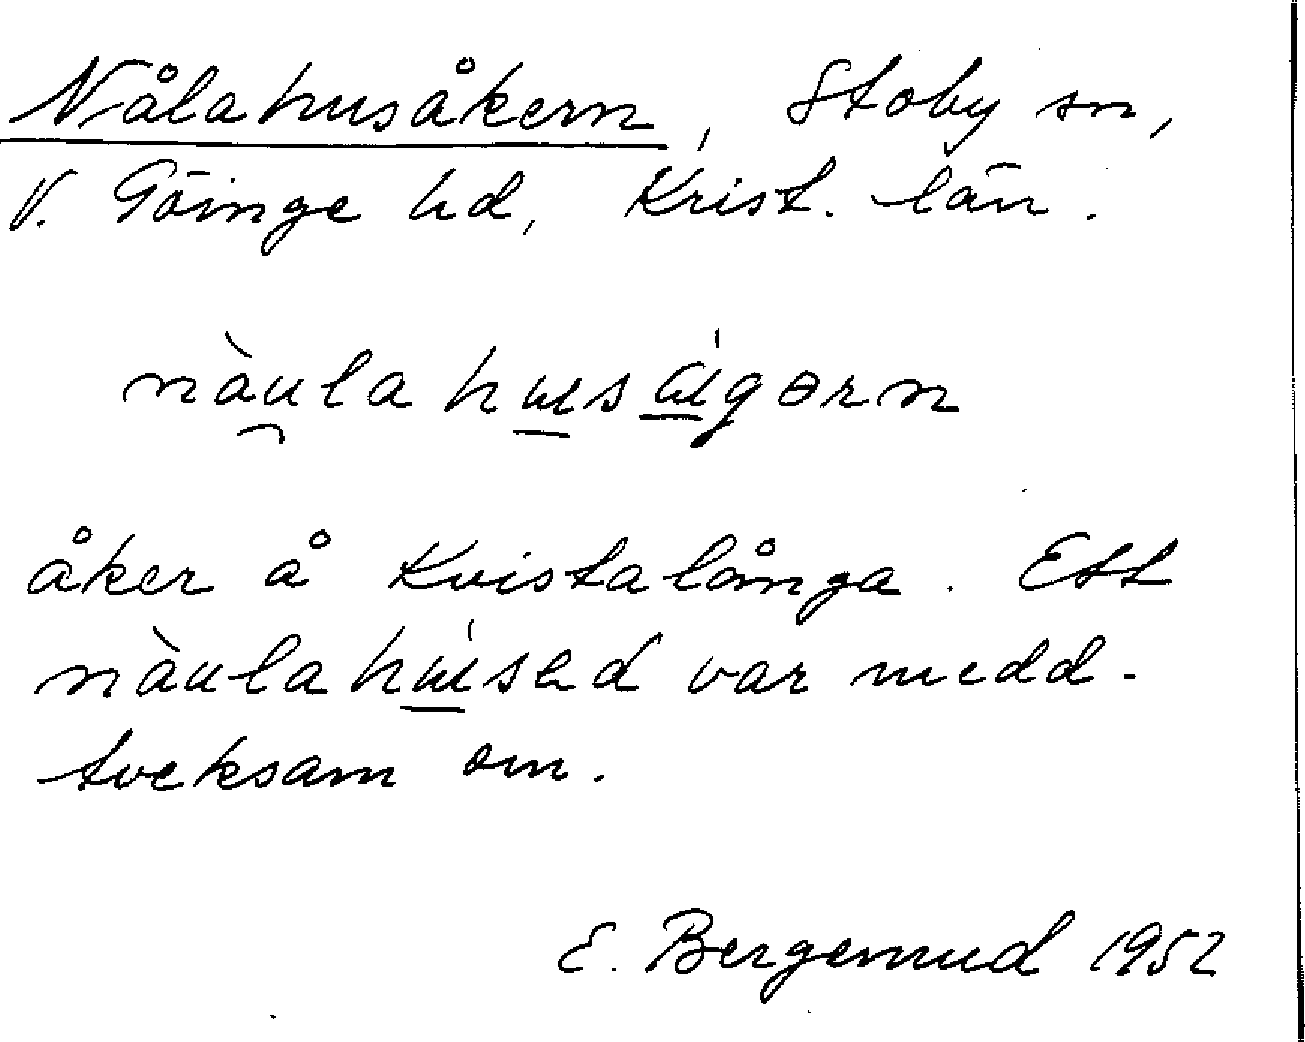 Nålahusåkern, Stoby sn,
V. Göinge hd, Krist. län.
nàu̯lahu̲sa̲ú̲gərn
åker å Kvistalånga. Ett
nàulahú̲səd var medd.
tveksam om.
E. Bergemud 1952